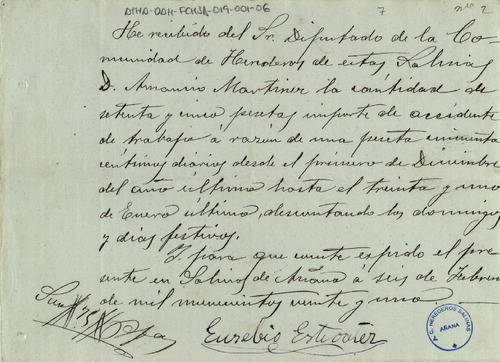 ATHA-DAH-FCHSA-019-001-06
7
nº 2
He recibido del Sr. Diputado de la Co-
munidad de Herederos de estas Salinas
D. Amancio Martinez la cantidad de
setenta y cinco pesetas importe de accidente
de trabajo á razón de una peseta cincuenta
céntimos diarios desde el primero de Diciembre
del año último hasta el treinta y uno
de Enero último, descontando los domingos
y dias festivos.
Y para que conste expido el pre-
sente en Salinas de Añana á seis de Febrero
de mil novecientos veinte y uno.
Son 75 Ptas
Eusebio
C. HEREDEROS SALINAS
AÑANA